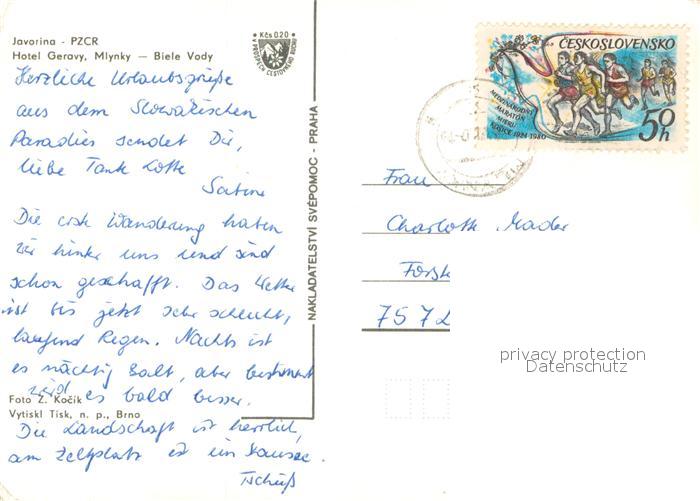 Javorina - PZCR
Hotel Geravy, Mlynky — Biele Vody
Kčs 0.20
V PROSPĚCH CESTOVNÍHO RUCHU
Herzliche Urlaubsgrüße
aus dem Slowakischen
Paradies sendet Dir,
liebe Tante Lotte
Sabine
Die erste Wanderung haben
wir hinter uns und sind
schon geschafft. Das Wetter
ist bis jetzt sehr schlecht,
laufend Regen. Nachts ist
es mächtig kalt, aber bestimmt
wird es bald besser.
Foto Z. Kočík
Vytiskl Tisk, n. p., Brno
Die Landschaft ist herrlich,
am Zeltplatz ist ein
Tschüß
NAKLADATELSTVÍ SVÉPOMOC - PRAHA
ČESKOSLOVENSKO
MEZINÁRODNÍ
MARATÓN
MIERU
KOŠICE 1924-1980
50h
Frau
Charlotte Mader
Forst
7572
privacy protection
Datenschutz